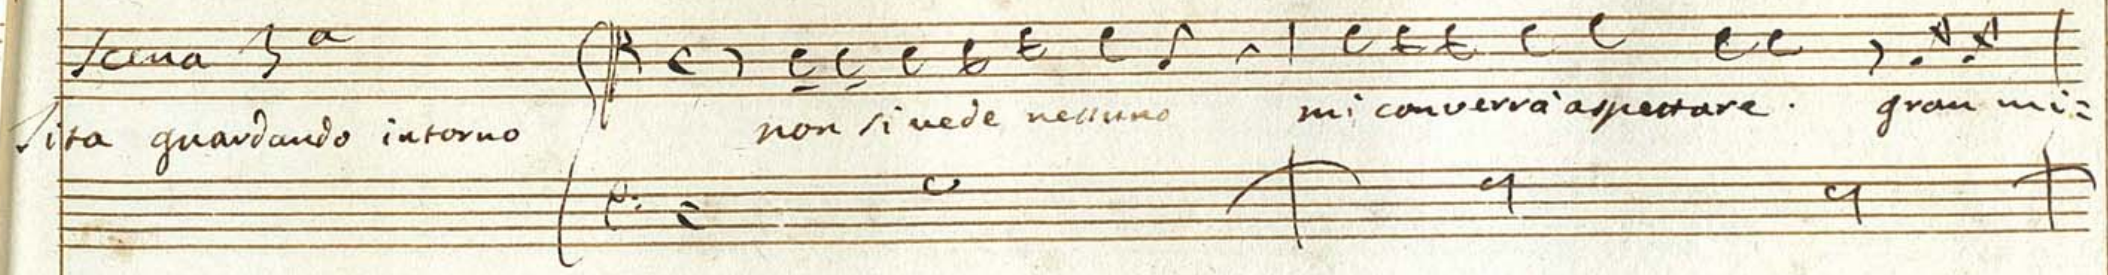 Scena 3ª
Si ta guardando intorno non si vede nessuno mi converrà aspettare. gran mi=